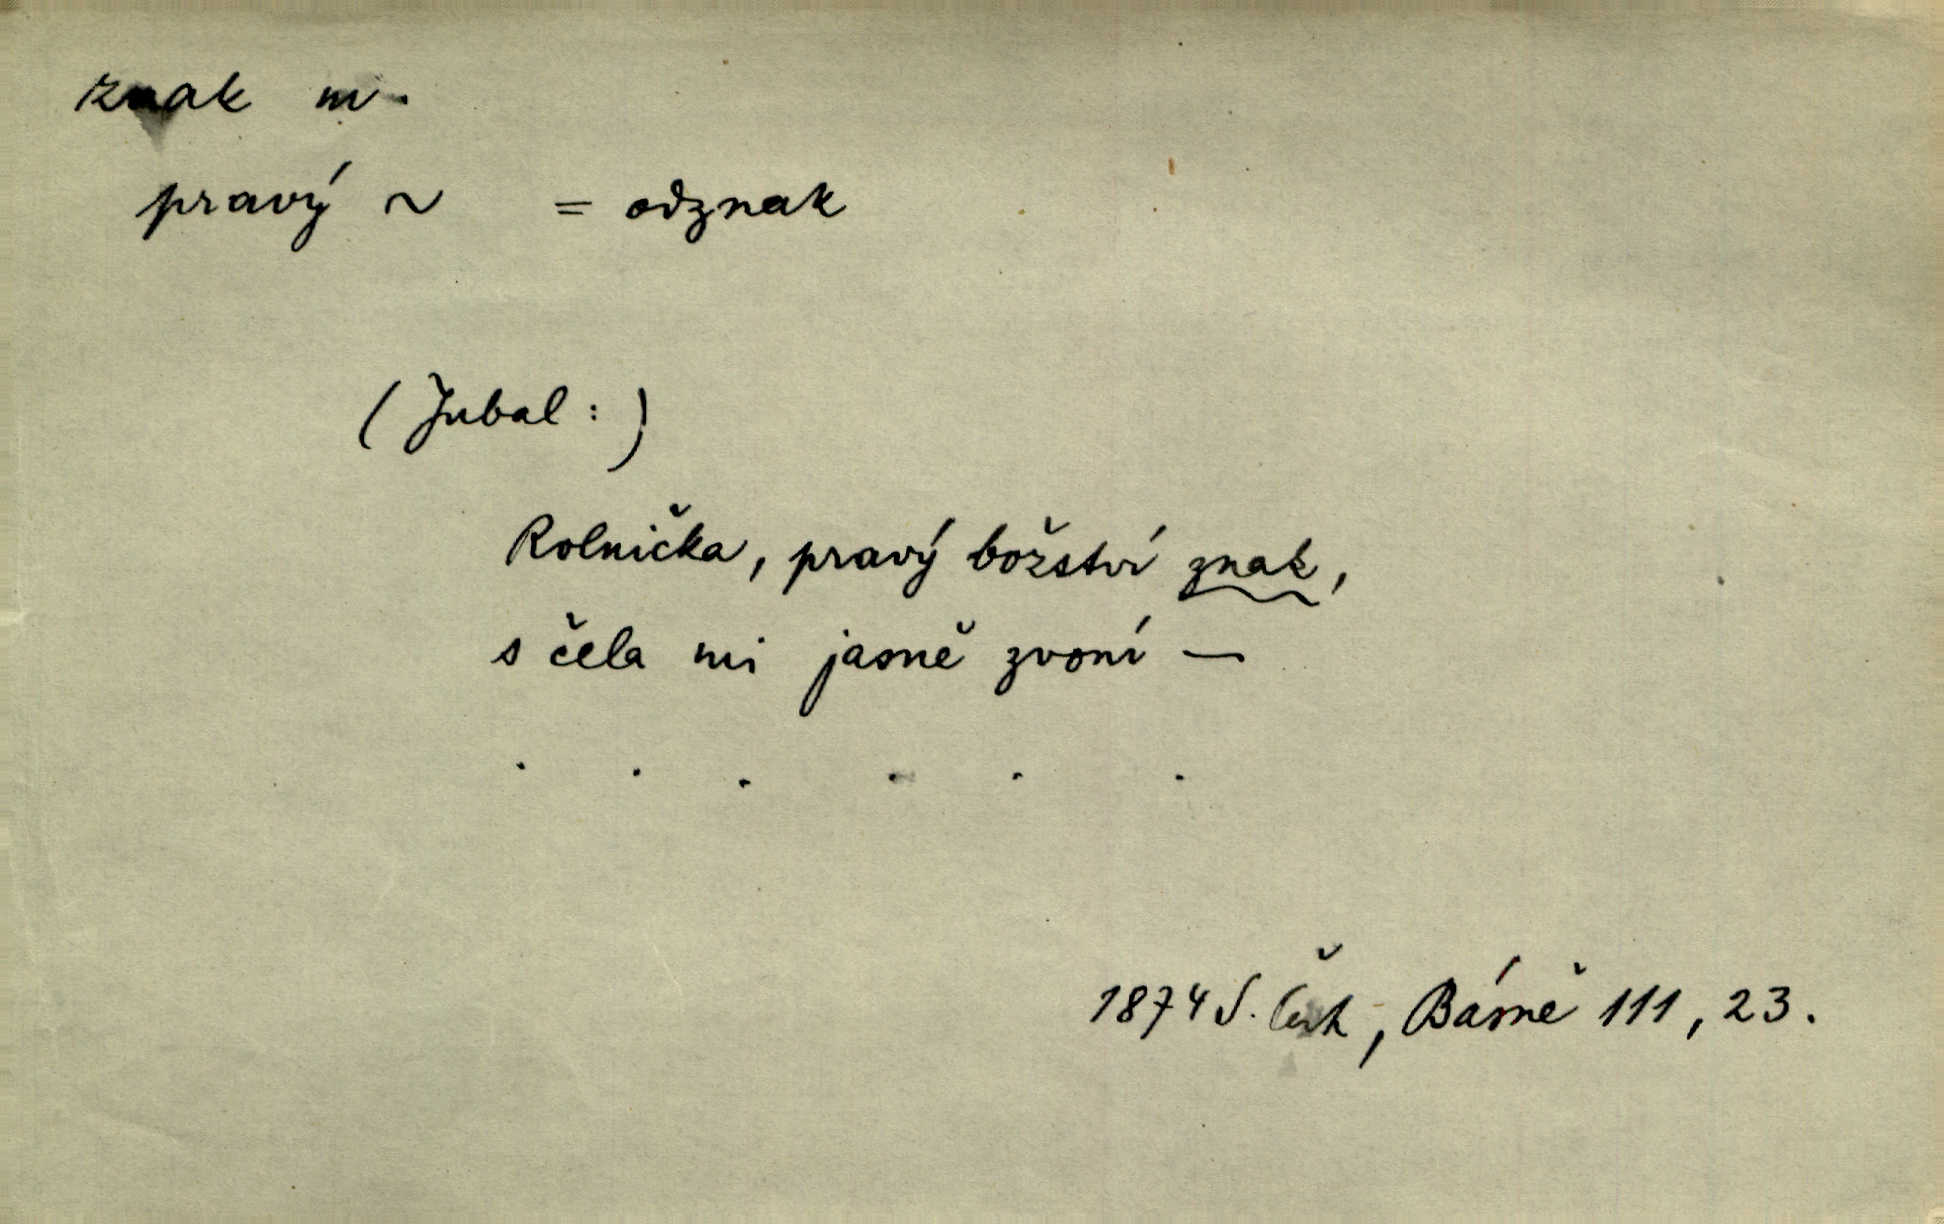 znak m.
pravý ~ = odznak
(Jubal:)
Rolnička, pravý božství znak,
s čela mi jasně zvoní —
. . . . . .
1874 S. Čech, Básně 111, 23.